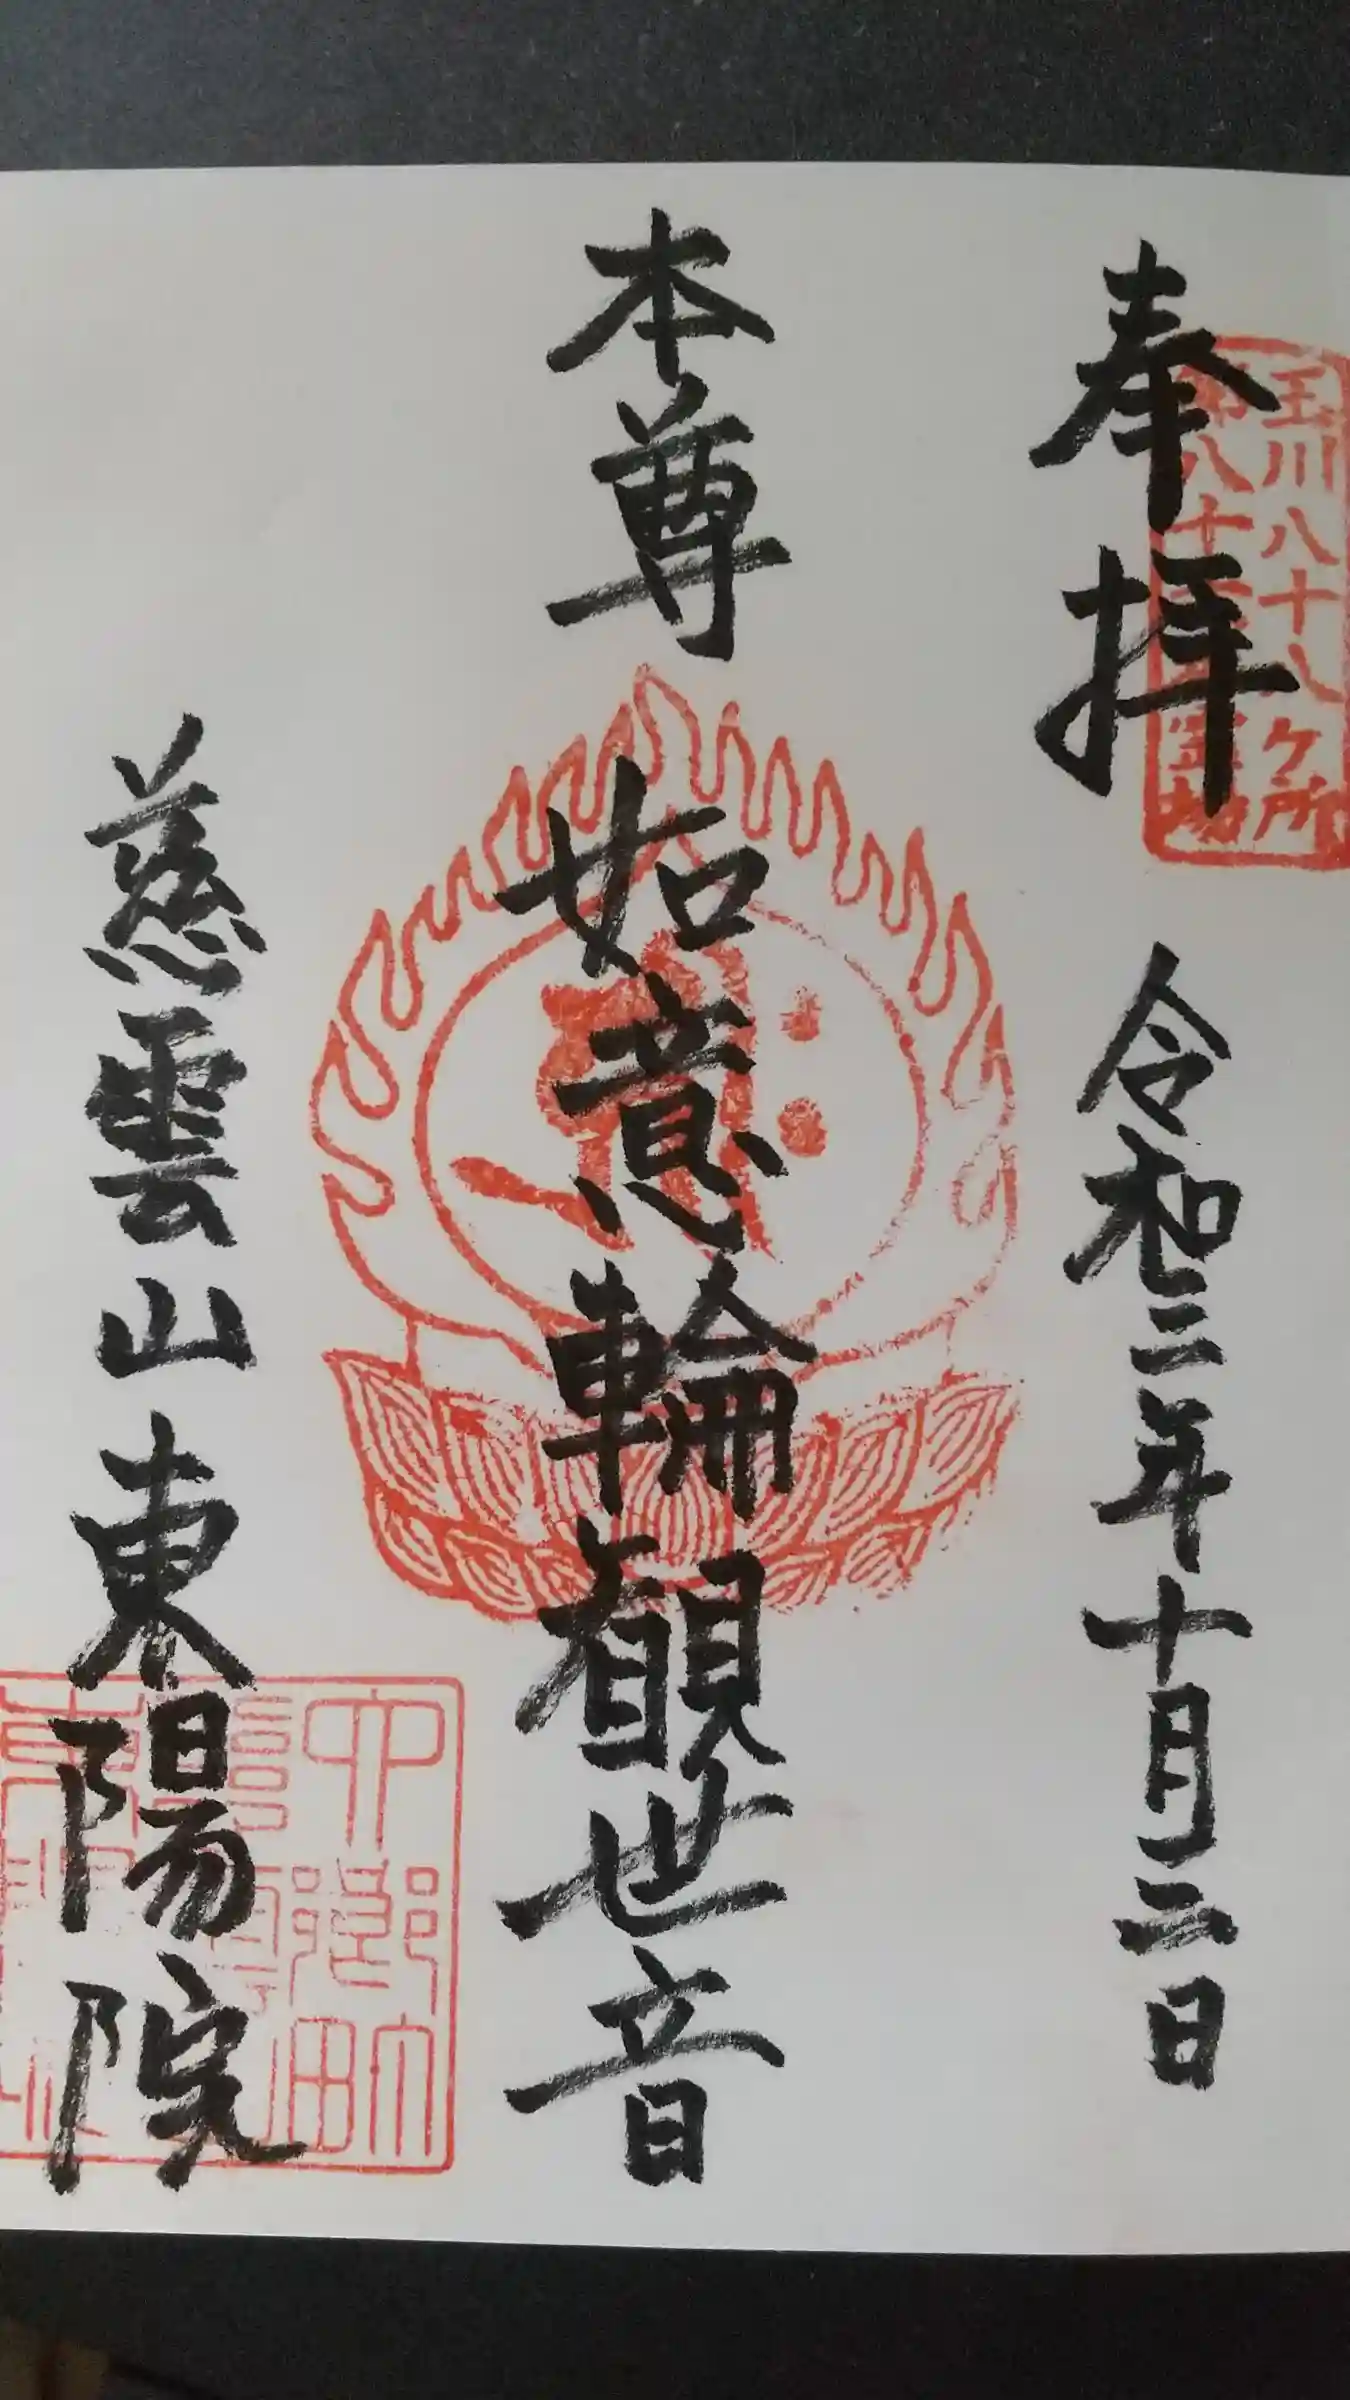 奉拝
令和三年十月二日
玉川八十八ヶ所
本尊
如意輪観世音
慈雲山
東陽院